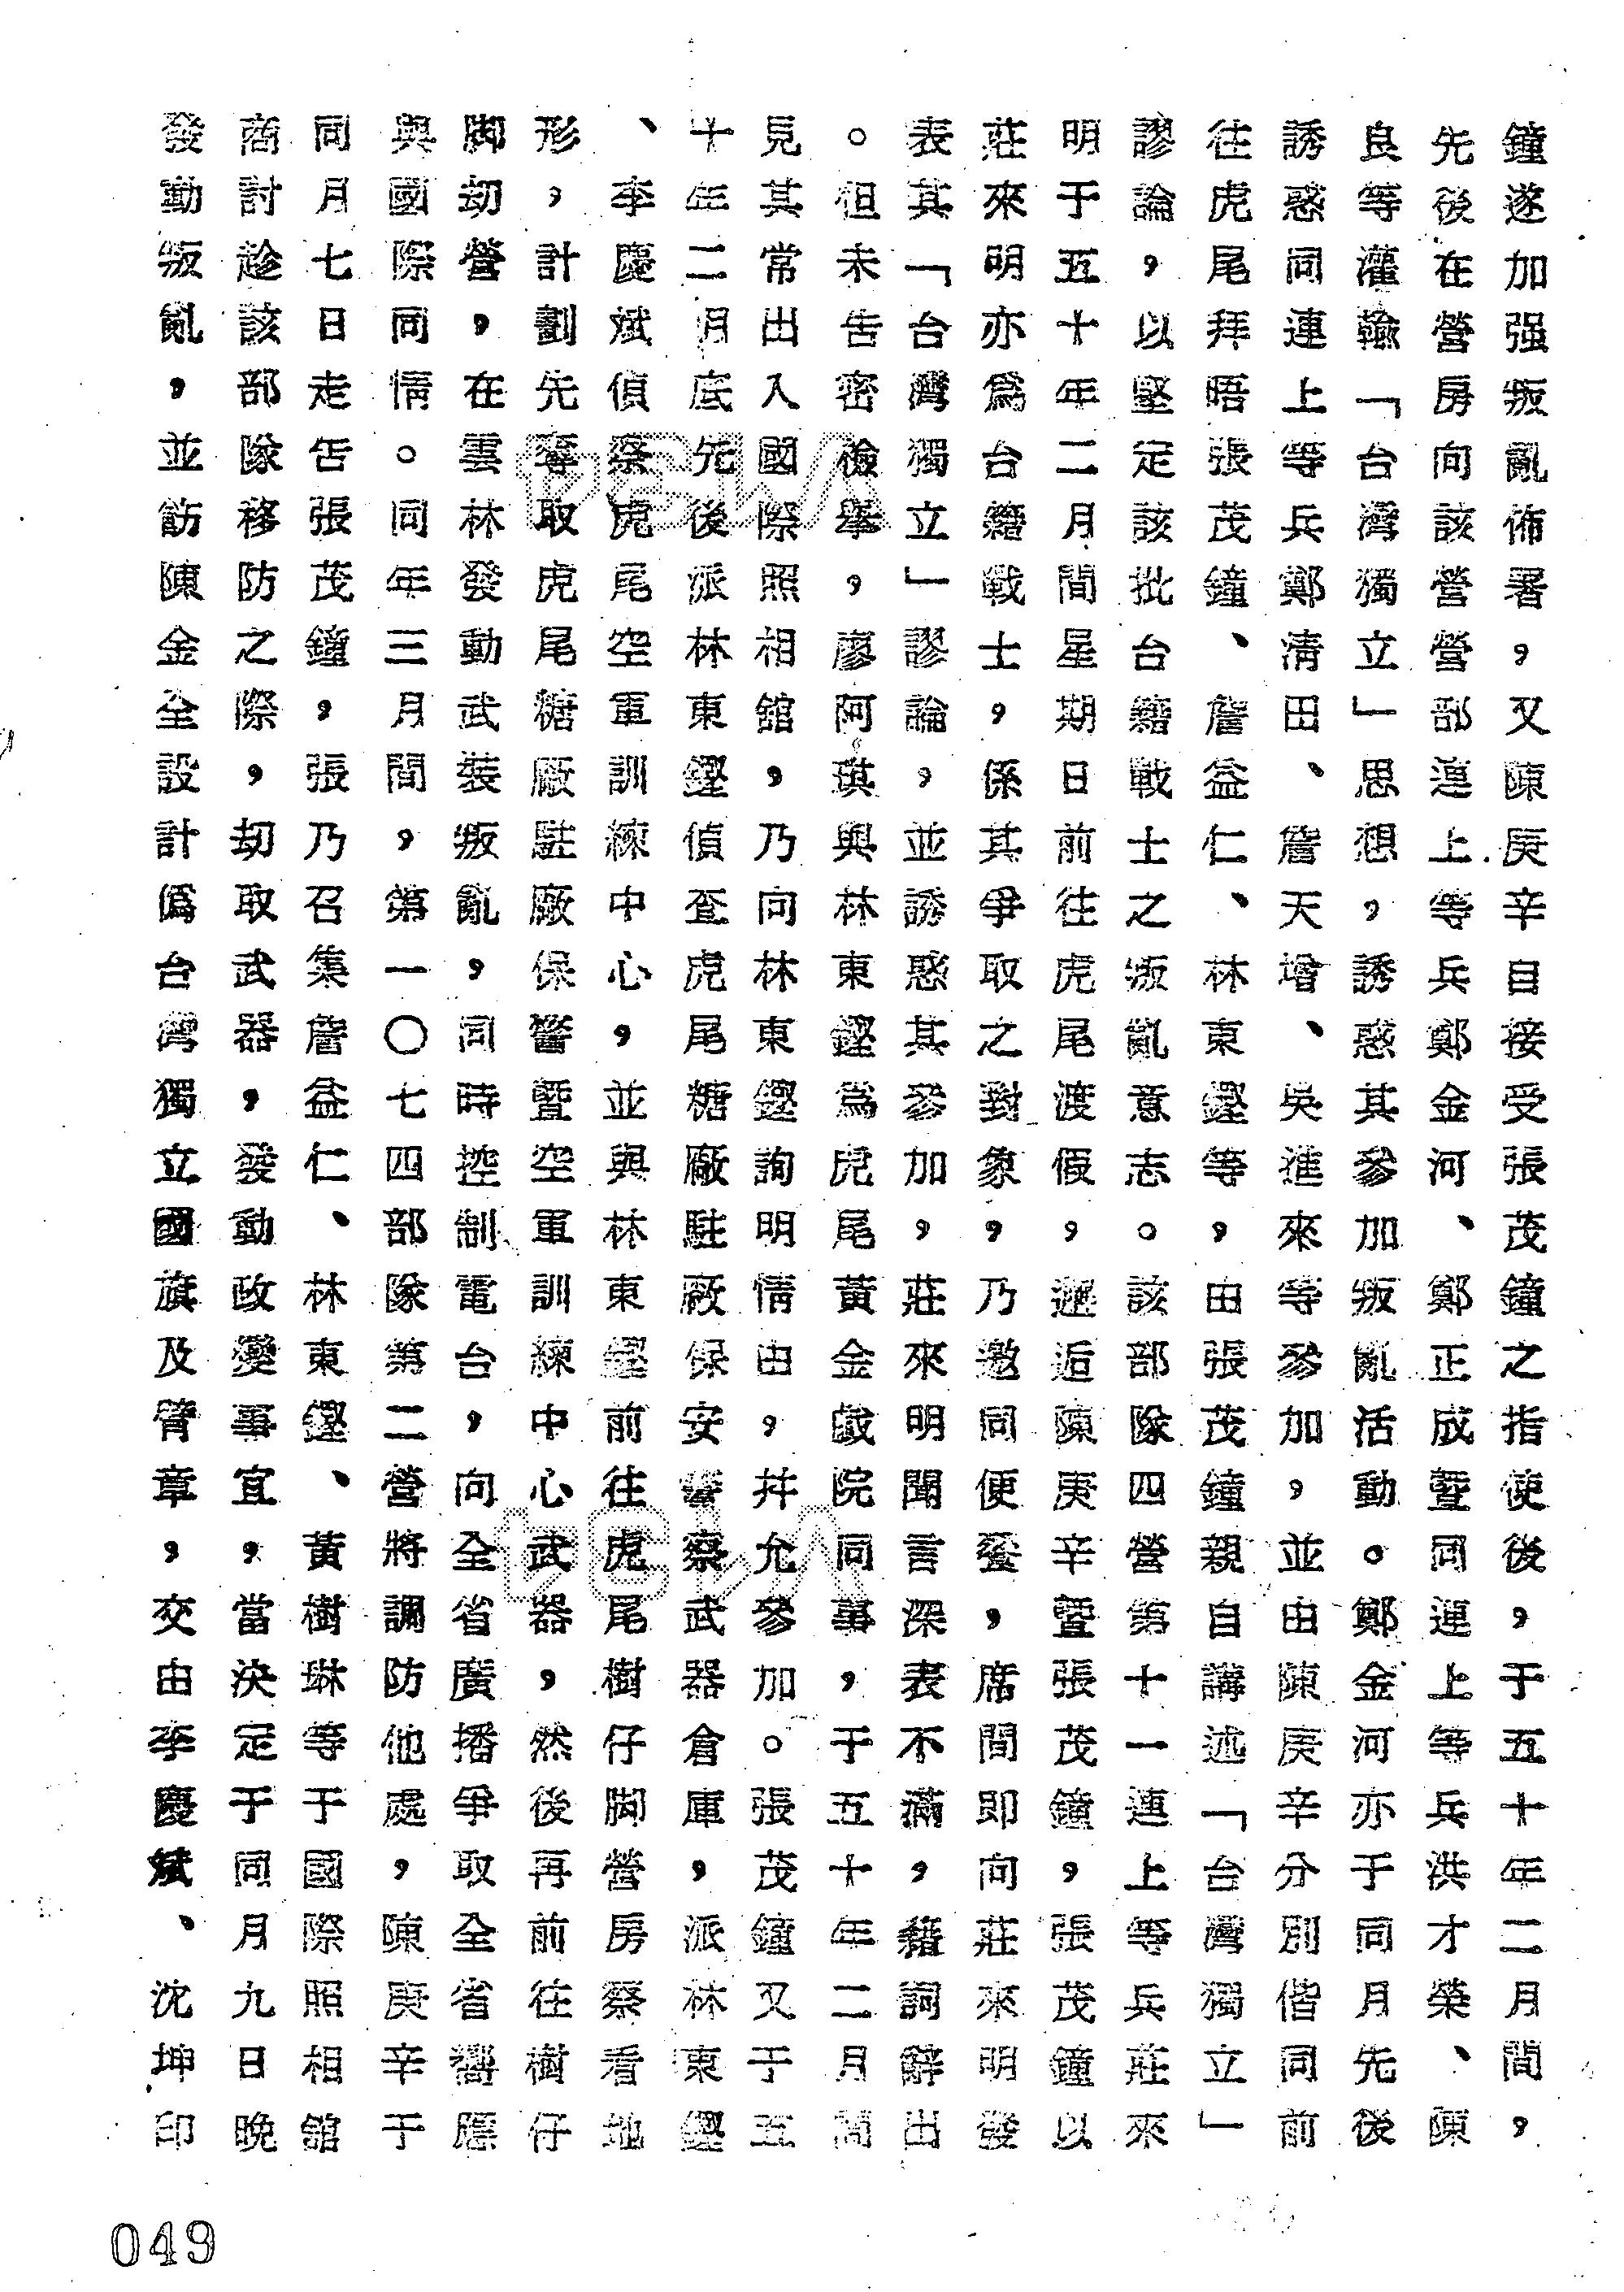 鐘遂加强叛亂佈署，又陳庚辛自接受張茂鐘之指使後，于五十年二月間，
先後在營房向該營營部連上等兵鄭金河、鄭正成暨同連上等兵洪才榮、陳
良等灌輸「台灣獨立」思想，誘惑其參加叛亂活動。鄭金河亦于同月先後
誘惑同連上等兵鄭清田、詹天增、吳進來等參加，並由陳庚辛分別偕同前
往虎尾拜晤張茂鐘、詹益仁、林東鏗等，由張茂鐘親自講述「台灣獨立」
謬論，以堅定該批台籍戰士之叛亂意志。該部隊四營第十一連上等兵莊來
明于五十年二月間星期日前往虎尾渡假，邂逅陳庚辛暨張茂鐘，張茂鐘以
莊來明亦爲台籍戰士，係其爭取之對象，乃邀同便餐，席間即向莊來明發
表其「台灣獨立」謬論，並誘惑其參加，莊來明聞言深表不滿，藉詞辭出
。但未告密檢舉，廖阿琪與林東鏗爲虎尾黃金戲院同事，于五十年二月間
見其常出入國際照相舘，乃向林東鏗詢明情由，并允參加。張茂鐘又于五
十年二月底先後派林東鏗偵査虎尾糖廠駐廠保安警察武器倉庫，派林東鏗
、李慶斌偵察虎尾空軍訓練中心，並與林東鏗前往虎尾樹仔脚營房察看地
形，計劃先奪取虎尾糖廠駐廠保警暨空軍訓練中心武器，然後再前往樹仔
脚劫營，在雲林發動武裝叛亂，同時控制電台，向全省廣播爭取全省響應
與國際同情。同年三月間，第一〇七四部隊第二營將調防他處，陳庚辛于
同月七日走告張茂鐘，張乃召集詹益仁、林東鏗、黃樹琳等于國際照相舘
商討趁該部隊移防之際，劫取武器，發動政變事宜，當決定于同月九日晚
發動叛亂，並飭陳金全設計僞台灣獨立國旗及臂章，交由李慶斌、沈坤印
049